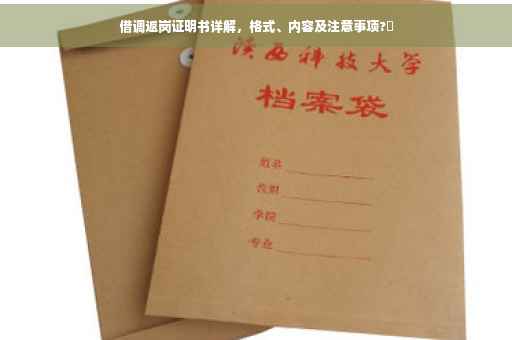 借调返岗证明书详解，格式、内容及注意事项?
陕西科技大学
档案袋
姓名
学院
专业